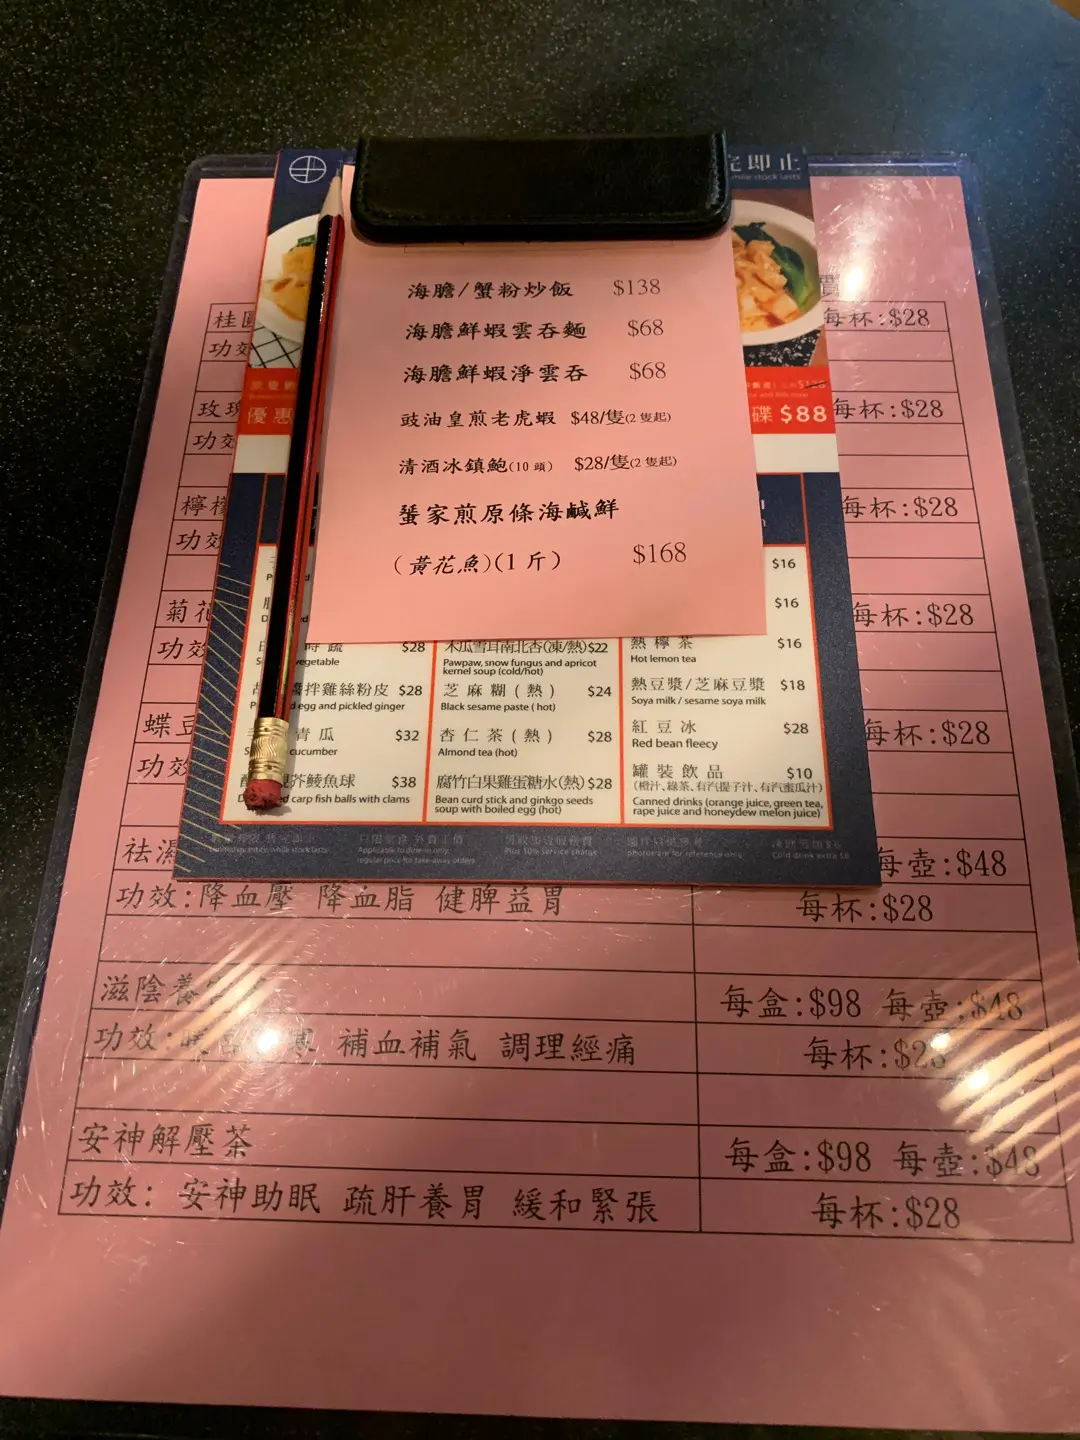 完即止
while stock lasts
海膽/蟹粉炒飯 $138
海膽鮮蝦雲吞麵 $68
海膽鮮蝦淨雲吞 $68
豉油皇煎老虎蝦 $48/隻(2 隻起)
清酒冰鎮鮑(10 頭) $28/隻(2 隻起)
蜑家煎原條海鹹鮮
(黃花魚)(1 斤) $168
優惠
碟 $88
$16
$16
時蔬 $28
vegetable
拌雞絲粉皮 $28
egg and pickled ginger
青瓜 $32
cucumber
芥鯪魚球 $38
carp fish balls with clams
木瓜雪耳南北杏(凍/熱) $22
Pawpaw, snow fungus and apricot
kernel soup (cold/hot)
芝麻糊(熱) $24
Black sesame paste ( hot)
杏仁茶(熱) $28
Almond tea (hot)
腐竹白果雞蛋糖水(熱) $28
Bean curd stick and ginkgo seeds
soup with boiled egg (hot)
熱檸茶 $16
Hot lemon tea
熱豆漿/芝麻豆漿 $18
Soya milk / sesame soya milk
紅豆冰 $28
Red bean fleecy
罐裝飲品 $10
(橙汁、綠茶、有汽提子汁、有汽蜜瓜汁)
Canned drinks (orange juice, green tea,
rape juice and honeydew melon juice)
Limited quantities, while stock lasts
Applicable to dine-in only
regular price for take-away orders
Plus 10% service charge
photos are for reference only
Cold drink extra $
桂 每杯:$28
功效
玫瑰 每杯:$28
功效
檸檬 每杯:$28
功效
菊花 每杯:$28
功效
蝶豆 每杯:$28
功效
祛濕 每壺:$48
功效:降血壓 降血脂 健脾益胃 每杯:$28
滋陰養 每盒:$98 每壺:$48
功效:暖 補血補氣 調理經痛 每杯:$28
安神解壓茶 每盒:$98 每壺:$48
功效: 安神助眠 疏肝養胃 緩和緊張 每杯:$28